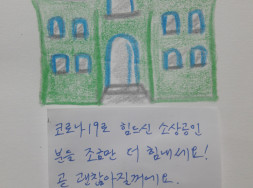 코로나19로 힘드신 소상공인
분들 조금만 더 힘내세요!
곧 괜찮아질꺼에요.